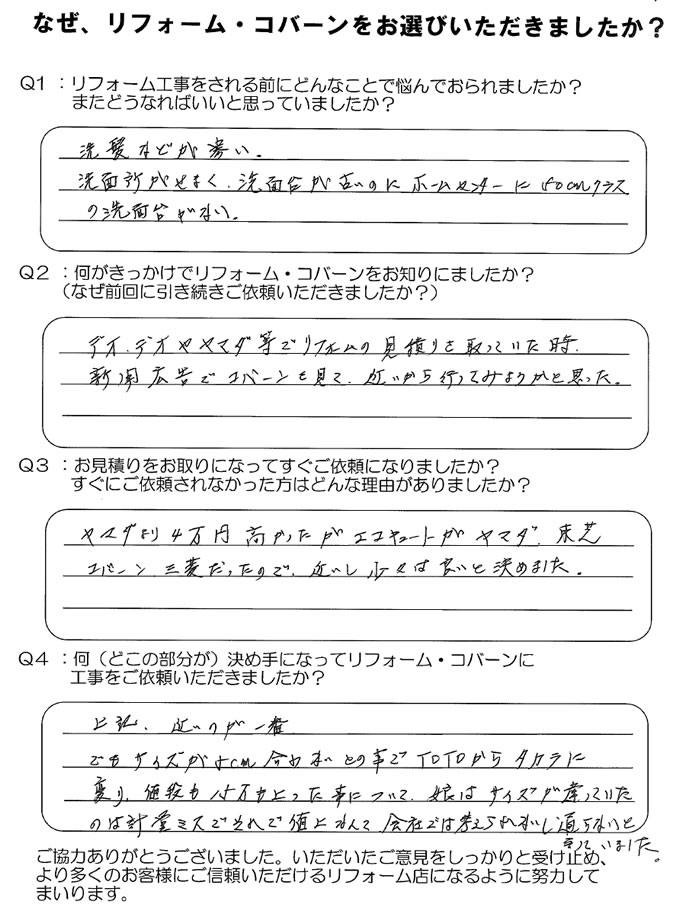 なぜ、リフォーム・コバーンをお選びいただきましたか？
Q1 ：リフォーム工事をされる前にどんなことで悩んでおられましたか？
またどうなればいいと思っていましたか？
洗髪などが寒い。
洗面所がせまく、洗面台が古いのにホームセンターに50cmクラス
の洗面台がない。
Q2 ：何がきっかけでリフォーム・コバーンをお知りにましたか？
（なぜ前回に引き続きご依頼いただきましたか？）
デオデオやヤマダ等でリフォームの見積りを取っていた時、
新聞広告でコバーンを見て、近いから行ってみようかと思った。
Q3 ：お見積りをお取りになってすぐご依頼になりましたか？
すぐにご依頼されなかった方はどんな理由がありましたか？
ヤマダより4万円高かったがエコキュートがヤマダ、東芝
コバーン、三菱だったので、近いし少々は良いと決めました。
Q4 ：何（どこの部分が）決め手になってリフォーム・コバーンに
工事をご依頼いただきましたか？
上記、近いのが一番
でもサイズが5cm合わないとの事でTOTOからタカラに
変り、値段も15万も上った事について、娘はサイズが違っていた
のは計量ミスでそれで値上なんて会社では考えられないし通らないと
言っていました。
ご協力ありがとうございました。いただいたご意見をしっかりと受け止め、
より多くのお客様にご信頼いただけるリフォーム店になるように努力して
まいります。